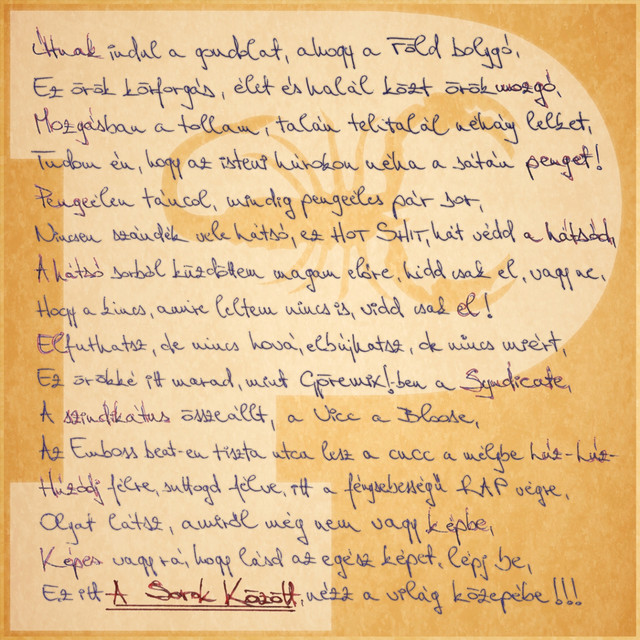 Útnak indul a gondolat, ahogy a Föld bolygó,
Ez örök körforgás, élet és halál közt örökmozgó,
Mozgásban a tollam, talán telitalál néhány lelket,
Tudom én, hogy az isteni húrokon néha a sátán penget!
Pengeélen táncol, mindig pengeéles pár sor,
Nincsen szándék vele hátsó, ez HOT SHIT, hát védd a hátsód,
A hátsó sorból küzdöttem magam előre, hidd csak el, vagy ne,
Hogy a kincs, amire leltem nincs is, vidd csak el!
Elfuthatsz, de nincs hová, elbújhatsz, de nincs miért,
Ez örökké itt marad, mint Gremix!-ben a Syndicate,
A szindikátus összeállt, a Vicc a Bloose,
Az Emboss beat-en tiszta utca lesz a cucc a mélybe húz-húz-
Húzódj félre, suttogd félve, itt a fénysebességű RAP végre,
Olyat látsz, amiről még nem vagy képbe,
Képes vagy rá, hogy lásd az egész képet, lépj be,
Ez itt A Sorok Között, nézz a világ közepébe!!!